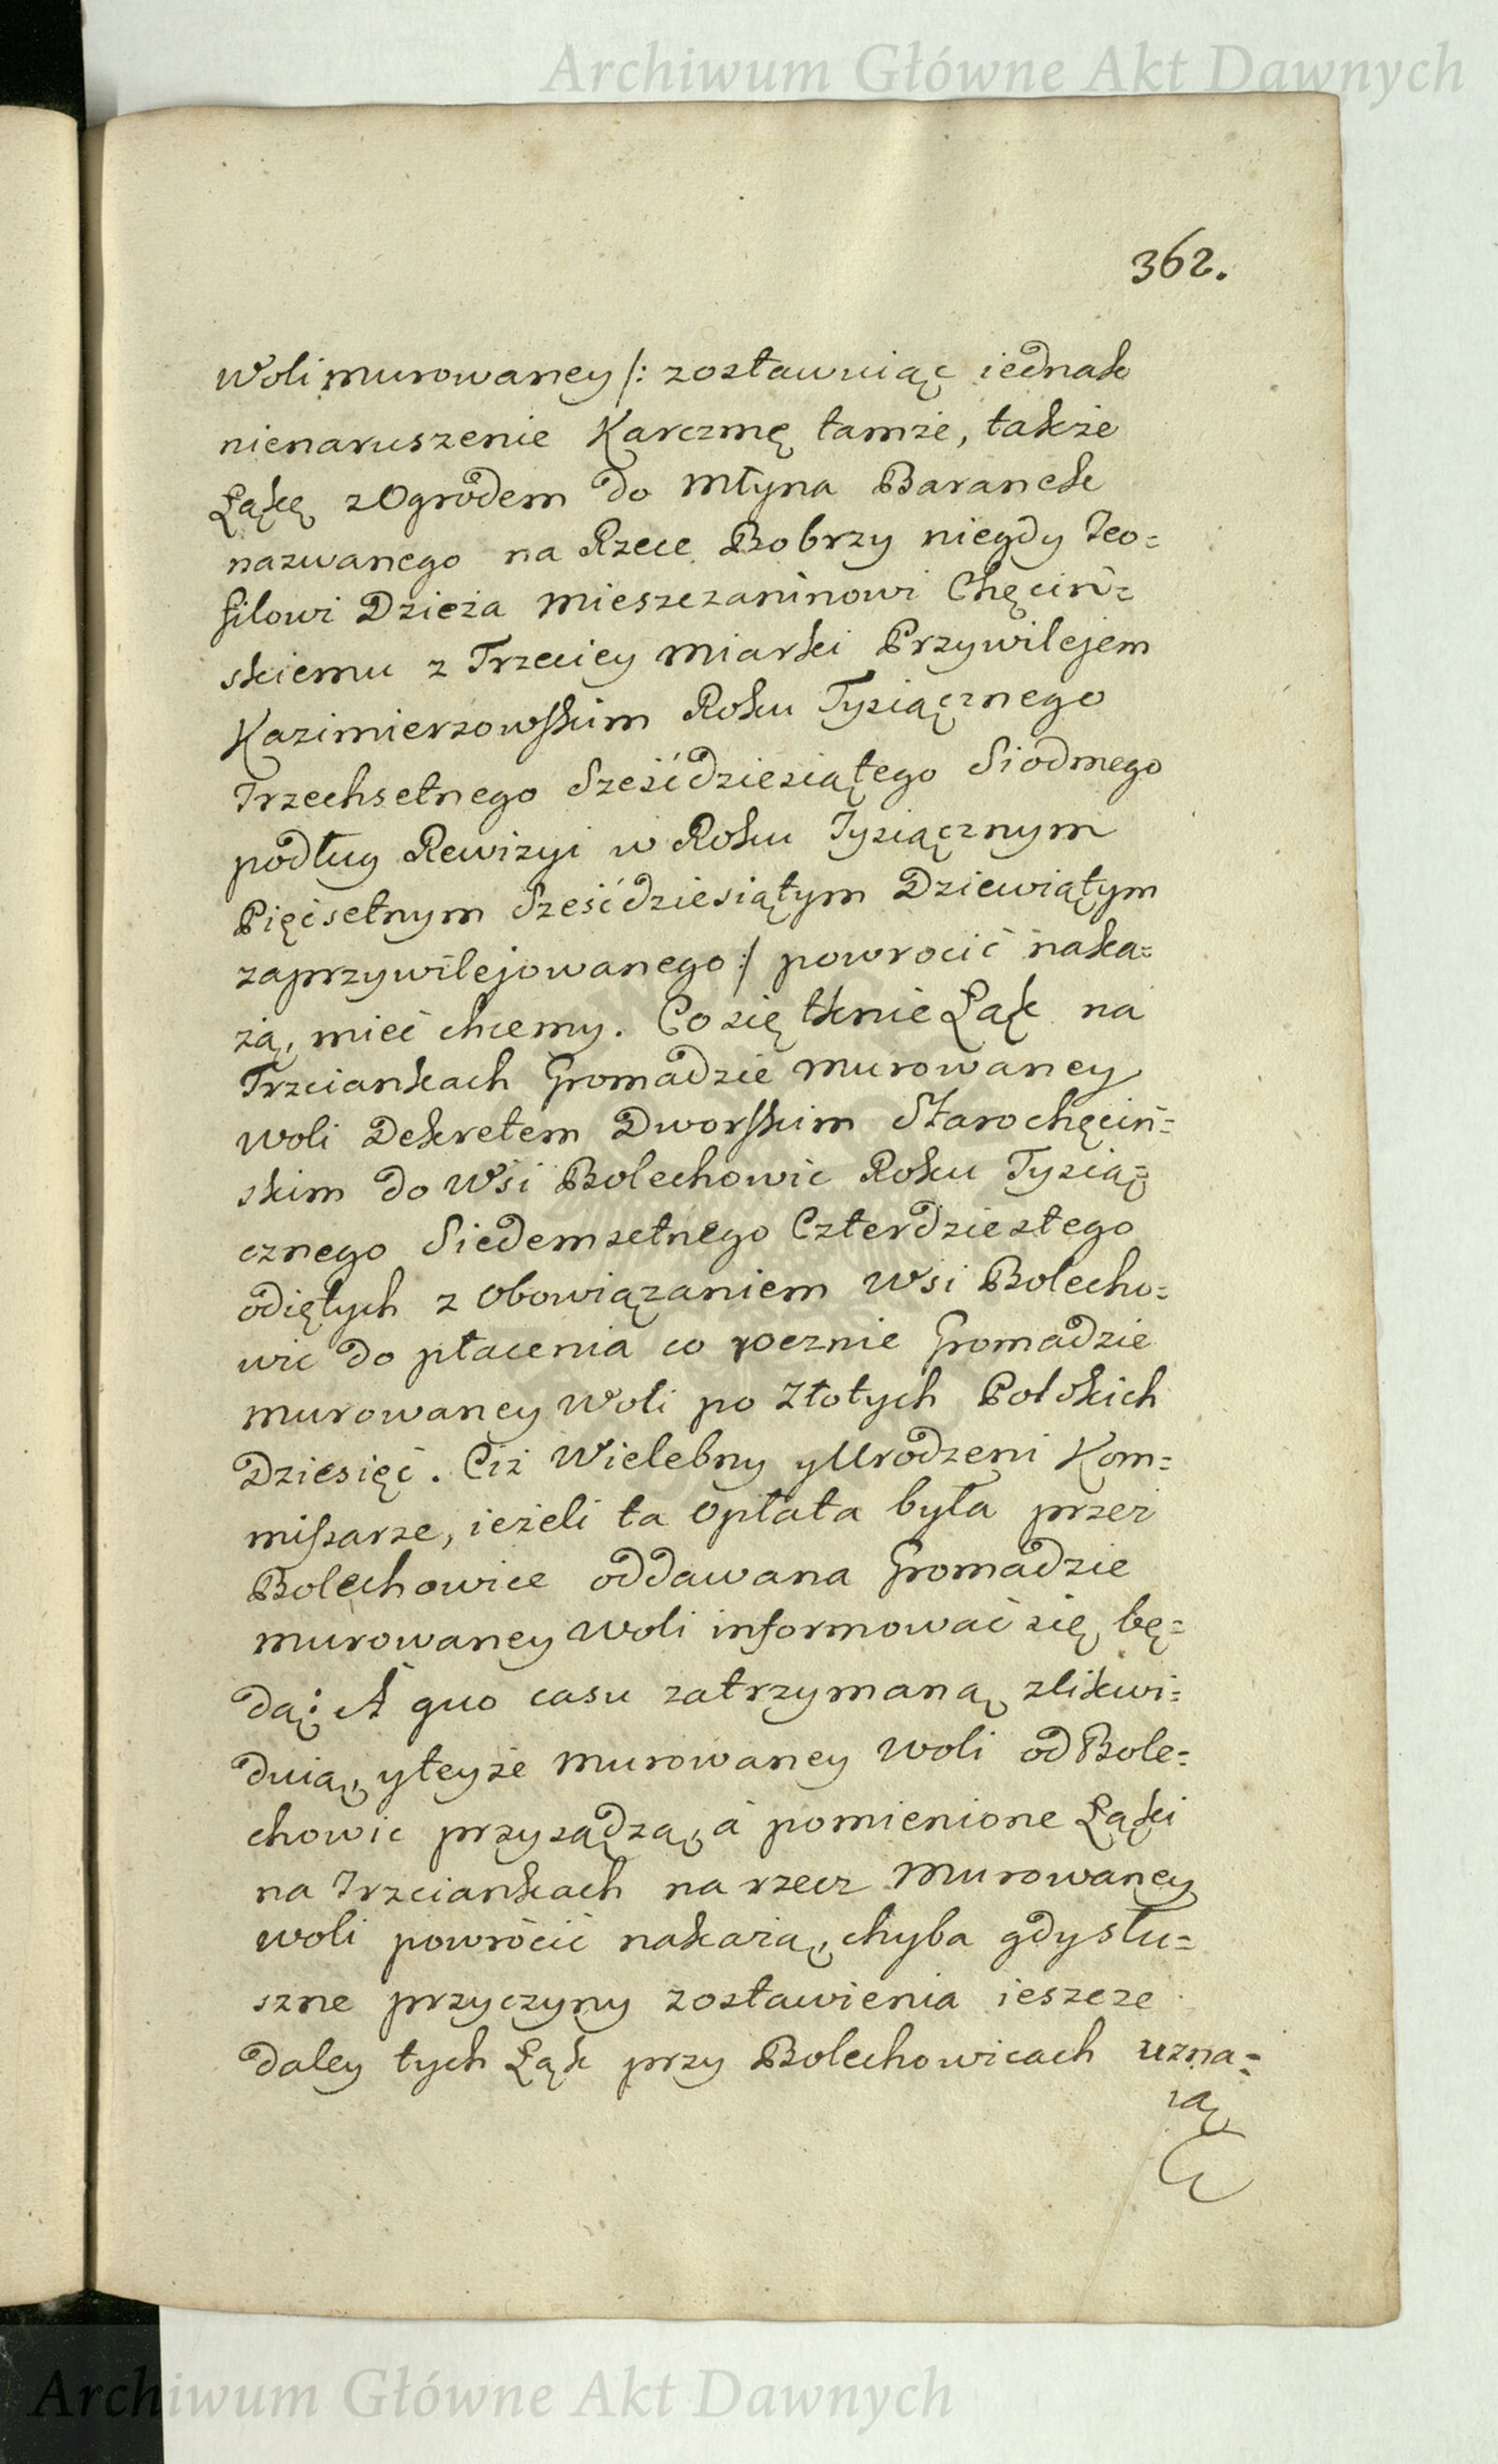 Archiwum Główne Akt Dawnych
362.
Woli murowaney /: zostawuiąc iednak
nienaruszenie Karczmę tamże, także
Łąkę z Ogrodem do Młyna Baranek
nazwanego na Rzece Bobrzy niegdy Teo=
filowi Dzieża Mieszczaninowi Chęciń=
skiemu z Trzeciey Miarki Przywilejem
Kazimierzowskim Roku Tysiącznego
Trzechsetnego Sześćdziesiątego Siodmego
podług Rewizyi w Roku Tysiącznym
Pięćsetnym Sześćdziesiątym Dziewiątym
zaprzywilejowanego :/ powrocić naka=
żą, mieć chcemy. Co się tknie Łąk na
Trzciankach Gromadzie Murowaney
Woli Dekretem Dworskim Starochęciń=
skim do Wsi Bolechowic Roku Tysią=
cznego Siedemsetnego Czterdziestego
odiętych z Obowiązaniem Wsi Bolecho=
wic do płacenia co rocznie Gromadzie
Murowaney Woli po Złotych Polskich
Dziesięć. Ciż Wielebny y Urodzeni Kom=
missarze, ieżeli ta Opłata była przez
Bolechowice oddawana Gromadzie
Murowaney Woli informować się bę=
dą: A quo casu zatrzymaną zlikwi=
duią, y teyże Murowaney Woli od Bole=
chowic przysądzą, á pomienione Łąki
na Trzciankach na rzecz Murowaney
Woli powrócić nakażą, chyba gdy słu=
szne przyczyny zostawienia ieszcze
daley tych Łąk przy Bolechowicach uzna=
ią
Archiwum Główne Akt Dawnych